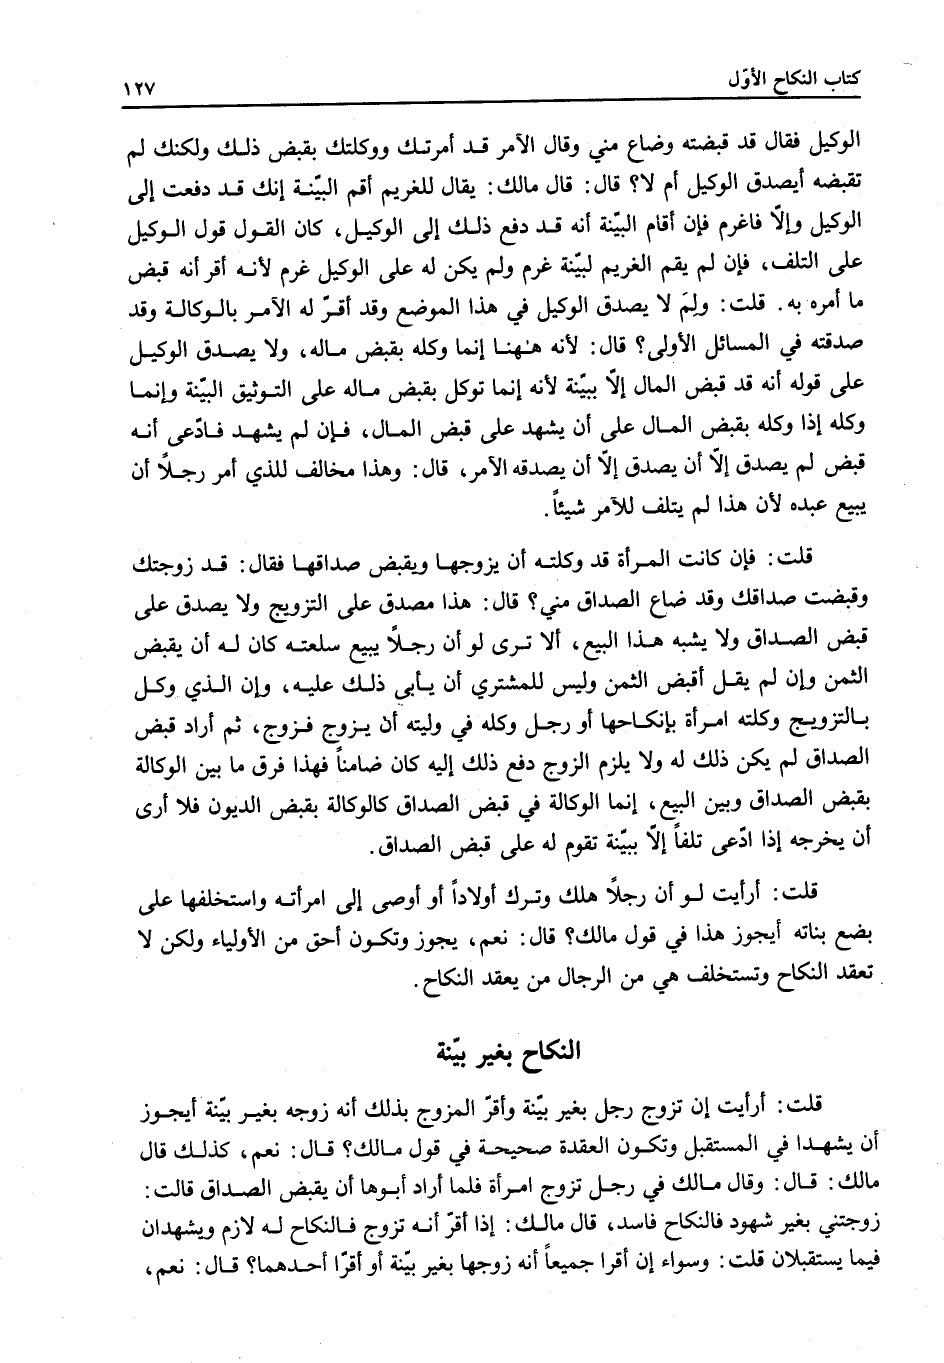 كتاب النكاح الأوّل
١٢٧
الوكيل فقال قد قبضته وضاع مني وقال الآمر قد أمرتك ووكلتك بقبض ذلك ولكنك لم
تقبضه أيصدق الوكيل أم لا؟ قال: قال مالك: يقال للغريم أقم البيّنة إنك قد دفعت إلى
الوكيل وإلّا فاغرم فإن أقام البيّنة أنه قد دفع ذلك إلى الوكيل، كان القول قول الوكيل
على التلف، فإن لم يقم الغريم لبيّنة غرم ولم يكن له على الوكيل غرم لأنه أقر أنه قبض
ما أمره به. قلت: ولِمَ لا يصدق الوكيل في هذا الموضع وقد أقرّ له الآمر بالوكالة وقد
صدقته في المسائل الأولى؟ قال: لأنه هٰهنا إنما وكله بقبض ماله، ولا يصدق الوكيل
على قوله أنه قد قبض المال إلّا ببيّنة لأنه إنما توكل بقبض ماله على التوثيق البيّنة وإنما
وكله إذا وكله بقبض المال على أن يشهد على قبض المال، فإن لم يشهد فادّعى أنه
قبض لم يصدق إلّا أن يصدق إلّا أن يصدقه الآمر، قال: وهذا مخالف للذي أمر رجلاً أن
يبيع عبده لأن هذا لم يتلف للآمر شيئاً.
قلت: فإن كانت المرأة قد وكلته أن يزوجها ويقبض صداقها فقال: قد زوجتك
وقبضت صداقك وقد ضاع الصداق مني؟ قال: هذا مصدق على التزويج ولا يصدق على
قبض الصداق ولا يشبه هذا البيع، ألا ترى لو أن رجلاً يبيع سلعته كان له أن يقبض
الثمن وإن لم يقل أقبض الثمن وليس للمشتري أن يأبى ذلك عليه، وإن الذي وكل
بالتزويج وكلته امرأة بإنكاحها أو رجل وكله في وليته أن يزوج فزوج، ثم أراد قبض
الصداق لم يكن ذلك له ولا يلزم الزوج دفع ذلك إليه كان ضامناً فهذا فرق ما بين الوكالة
بقبض الصداق وبين البيع، إنما الوكالة في قبض الصداق كالوكالة بقبض الديون فلا أرى
أن يخرجه إذا ادّعى تلفاً إلّا ببيّنة تقوم له على قبض الصداق.
قلت: أرأيت لو أن رجلاً هلك وترك أولاداً أو أوصى إلى امرأته واستخلفها على
بضع بناته أيجوز هذا في قول مالك؟ قال: نعم، يجوز وتكون أحق من الأولياء ولكن لا
تعقد النكاح وتستخلف هي من الرجال من يعقد النكاح.
النكاح بغير بيّنة
قلت: أرأيت إن تزوج رجل بغير بيّنة وأقرّ المزوج بذلك أنه زوجه بغير بيّنة أيجوز
أن يشهدا في المستقبل وتكون العقدة صحيحة في قول مالك؟ قال: نعم، كذلك قال
مالك: قال: وقال مالك في رجل تزوج امرأة فلما أراد أبوها أن يقبض الصداق قالت:
زوجتني بغير شهود فالنكاح فاسد، قال مالك: إذا أقرّ أنه تزوج فالنكاح له لازم ويشهدان
فيما يستقبلان قلت: وسواء إن أقرا جميعاً أنه زوجها بغير بيّنة أو أقرّا أحدهما؟ قال: نعم،